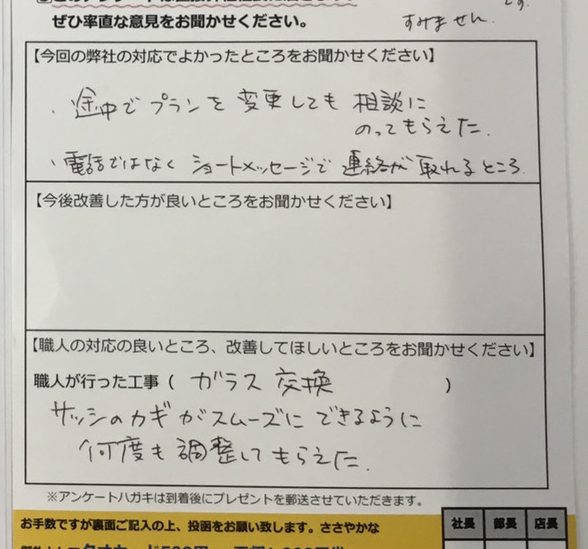 ぜひ率直な意見をお聞かせください。
すみません。
【今回の弊社の対応でよかったところをお聞かせください】
・途中でプランを変更しても相談に
のってもらえた。
・電話ではなくショートメッセージで連絡が取れるところ。
【今後改善した方が良いところをお聞かせください】
【職人の対応の良いところ、改善してほしいところをお聞かせください】
職人が行った工事（ ガラス交換 ）
サッシのカギがスムーズにできるように
何度も調整してもらえた。
※アンケートハガキは到着後にプレゼントを郵送させていただきます。
お手数ですが裏面ご記入の上、投函をお願い致します。ささやかな
社長 部長 店長